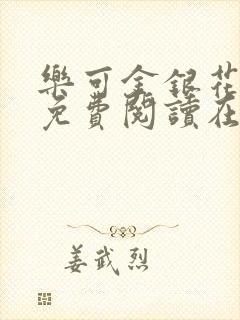 樂可金銀花
免費閱讀在
姜武烈